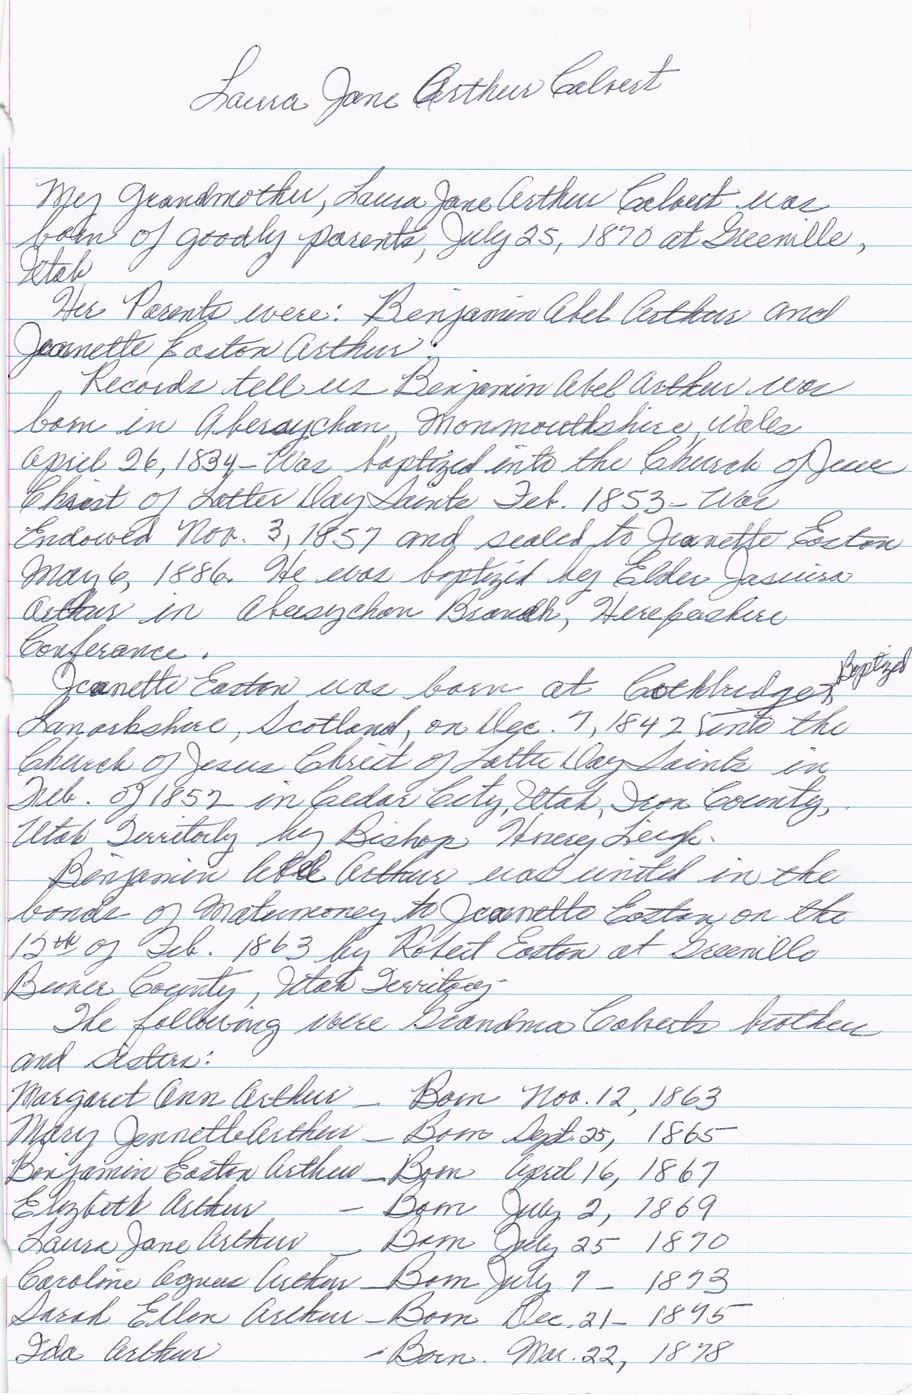 Laura Jane Arthur Calvert
My Grandmother, Laura Jane Arthur Calvert was
born of goodly parents, July 25, 1870 at Greenville,
Utah
Her Parents were: Benjamin Abel Arthur and
Jeanette Easton Arthur.
Records tell us Benjamin Abel Arthur was
born in Abersychan, Monmouthshire, Wales
April 26, 1834 - Was baptized into the Church of Jesus
Christ of Latter Day Saints Feb. 1853 - Was
Endowed Nov. 3, 1857 and sealed to Jeanette Easton
May 6, 1886. He was baptized by Elder
Arthur in Abersychan Branch, Herefashire
Conference.
Jeanette Easton was born at Cothbridge, Baptized
Lanarkshire, Scotland, on Dec. 7, 1842 into the
Church of Jesus Christ of Latter Day Saints in
Feb. of 1852 in Cedar City, Utah, Iron County,
Utah Territorly by Bishop Henery Leigh.
Benjamin Abel Arthur was united in the
bonds of Matrimoney to Jeanette Easton on the
12th of Feb. 1863 by Robert Easton at Greenville
Beaver County, Utah Territory-
The following were Grandma Calverts brother
and sisters:
Margaret Ann Arthur - Born Nov. 12, 1863
Mary Jennette Arthur - Born Sept. 25, 1865
Benjamin Easton Arthur - Born April 16, 1867
Elizbeth Arthur - Born July 2, 1869
Laura Jane Arthur - Born July 25 1870
Caroline Agnes Arthur - Born July 7 - 1873
Sarah Ellen Arthur - Born Dec. 21 - 1875
Ida Arthur - Born. Mar. 22, 1878